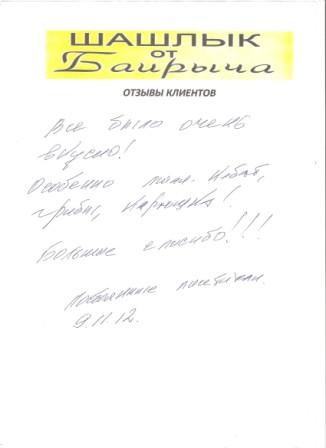 ШАШЛЫК
от
Байрыча
ОТЗЫВЫ КЛИЕНТОВ
Все было очень
вкусно!
Особенно
грибы, картошка!
Большое спасибо!!!
Постоянные посетители.
9.11.12.